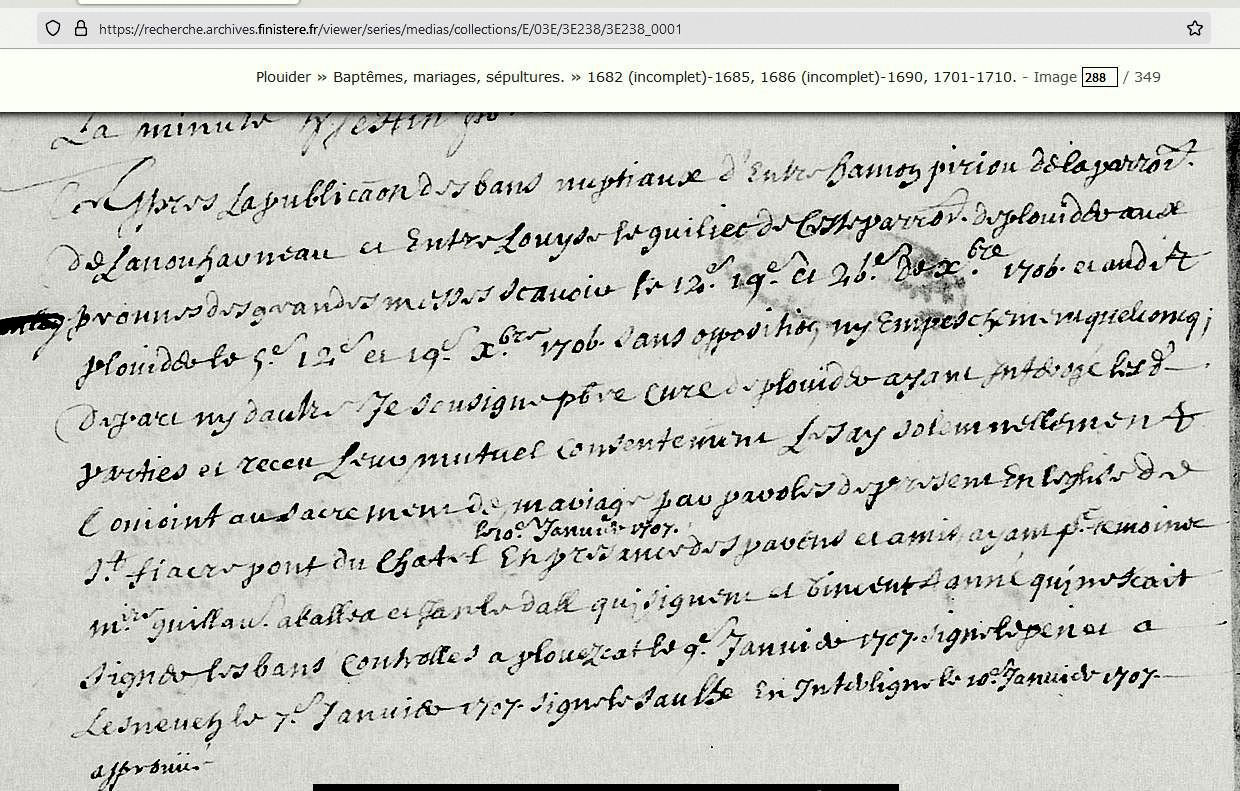 https://recherche.archives.finistere.fr/viewer/series/medias/collections/E/03E/3E238/3E238_0001
Plouider » Baptêmes, mariages, sépultures. » 1682 (incomplet)-1685, 1686 (incomplet)-1690, 1701-1710. - Image 288 / 349
La minute
Apres La publicãon des bans nuptiaux d'Entre hamon piriou de la parroi.
de Lanouhavneau et Entre Louyse le guiliec de Cette parroi. de plouider aux
pronnes des grandes messes scavoir le 12.e 19.e et 26.e De x.bre 1706. et audit
plouider le 5.e 12.e et 19.e x.bre 1706. sans opposition ny Empeschement quelconq;
de part ny dautre Je sousigne pbre Cure de plouider ayant Interogé les d.
parties et receu Leur mutuel Consentement Les ay solemnellement
Conioint au sacrement de mariage par paroles de present En leglise de
le 10.e Janvier 1707.
St. fiacre pont du Chatel En presance des parens et amis ayant p.r temoins
m.re guillau. aballea et Jan le dall qui signent et vincent Janné qui ne scait
signer les bans Controlles a plouezcat le 9.e Janvier 1707. signe le pen et a
Lesneven le 7.e Janvier 1707. signe le saulx En Interligne le 10.e Janvier 1707.
approuvé